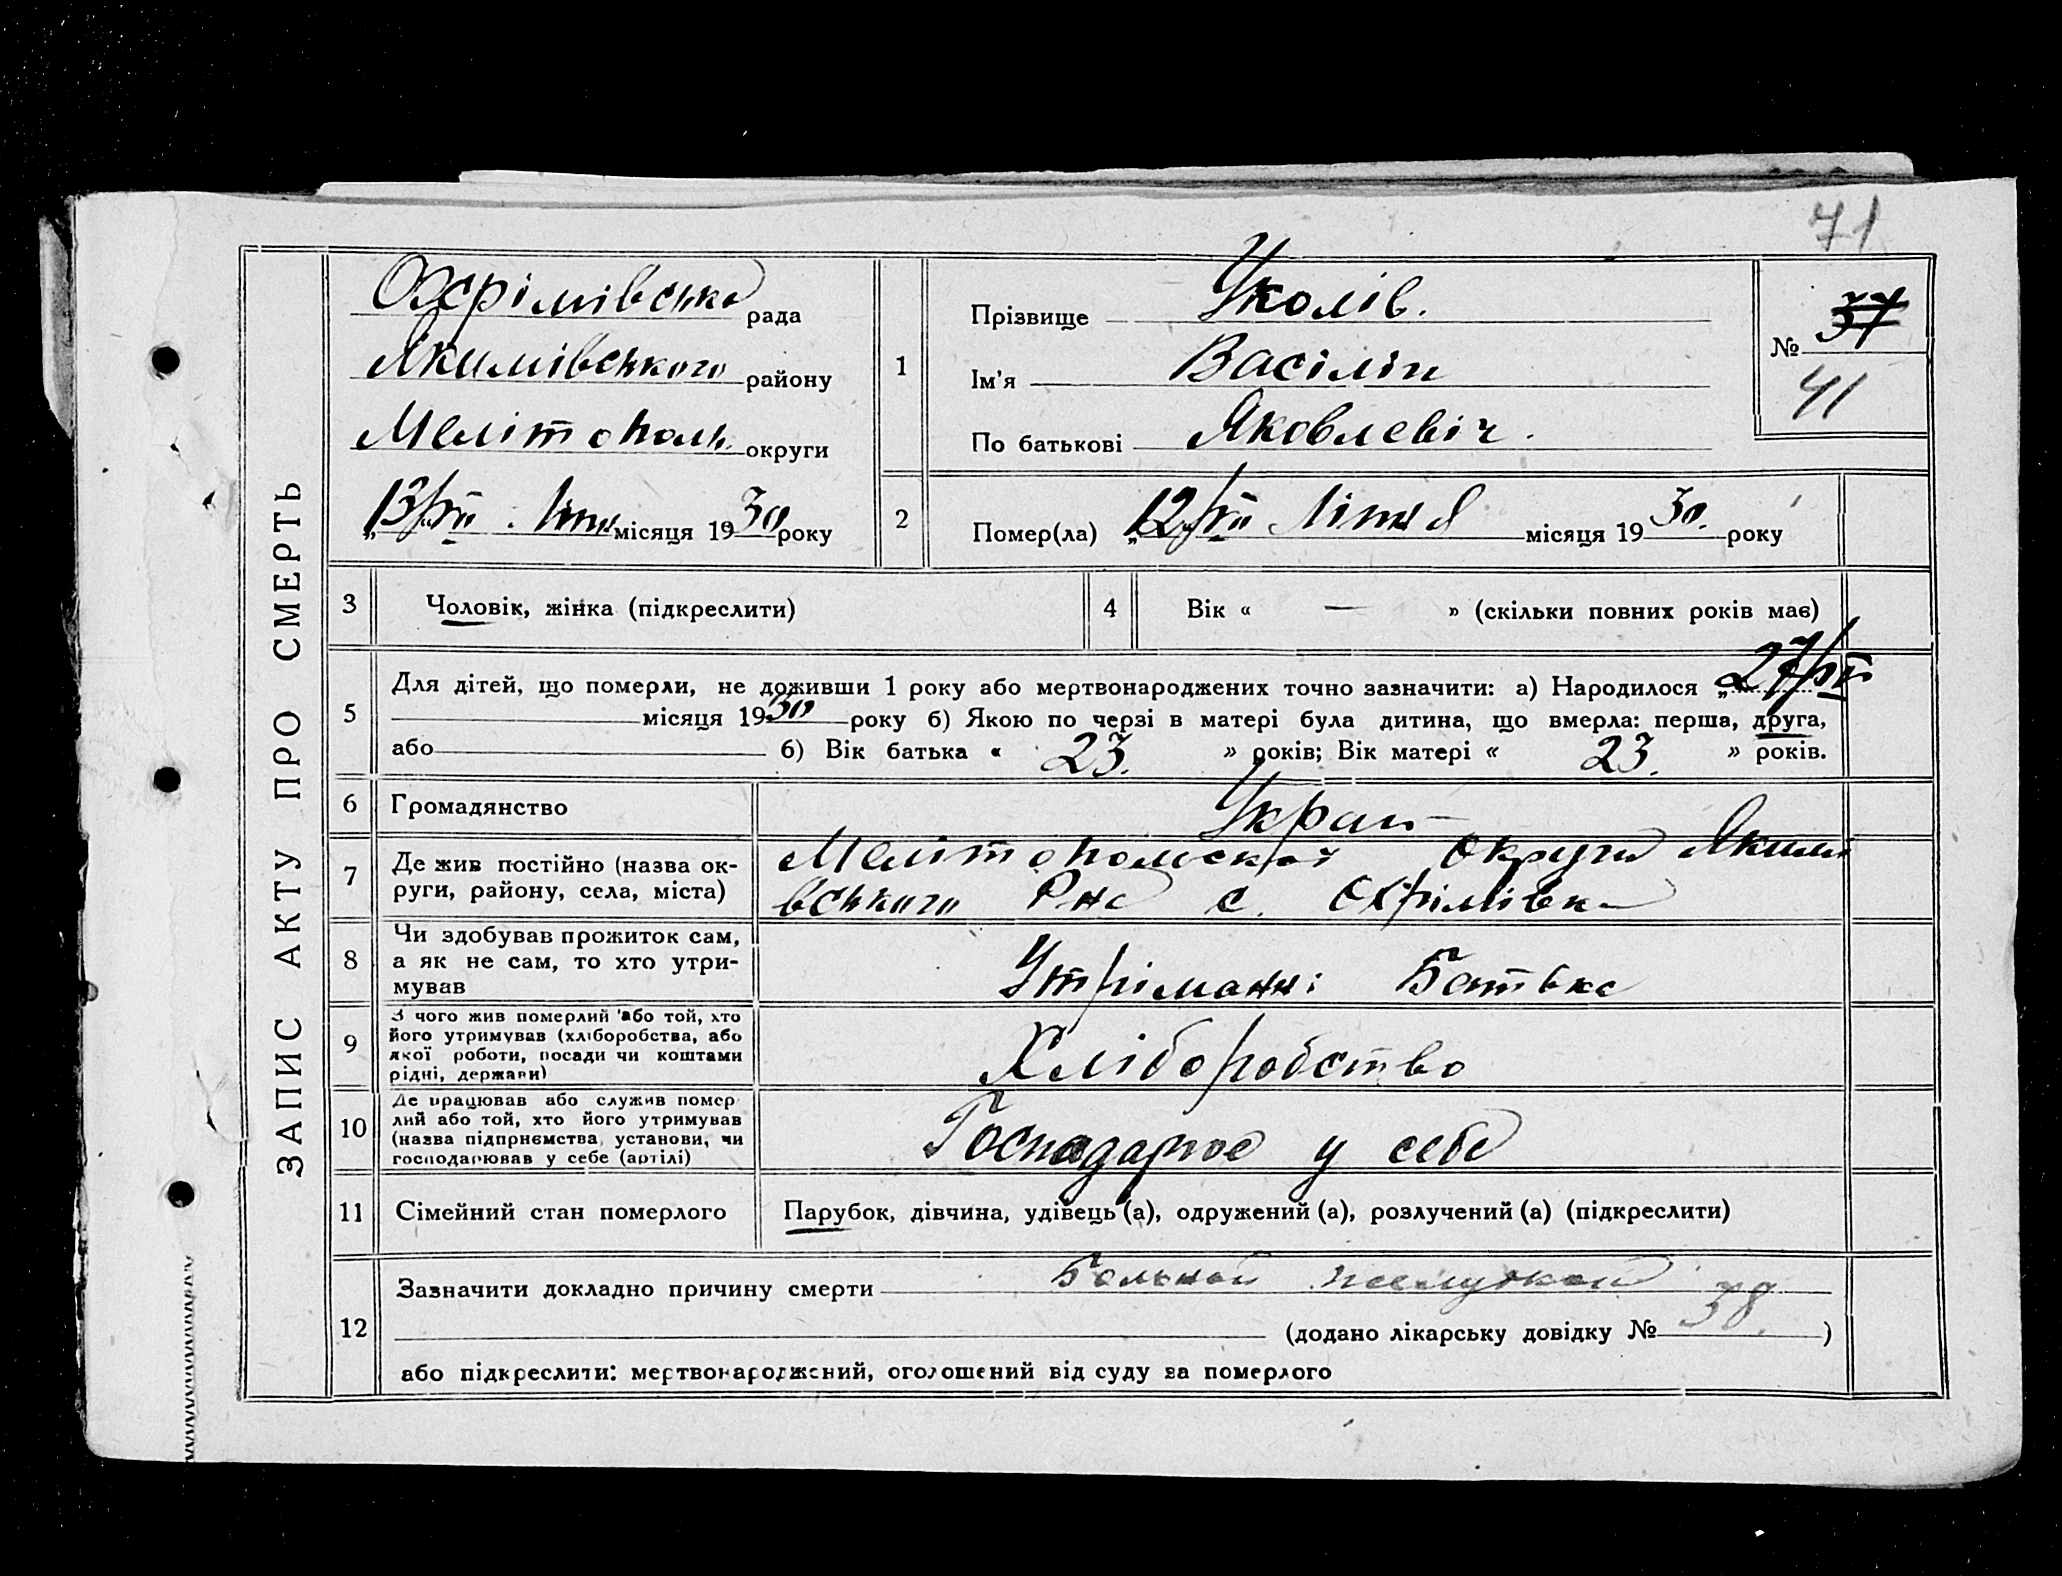 71
ЗАПИС АКТУ ПРО СМЕРТЬ
Охрімівська рада
Якимівського району
Мелітополь. округи
„13/VII Липн місяця 1930 року
1
Прізвище Уколів.
Ім'я Васілій
По батькові Яковлевіч.
№ 37
41
2
Помер(ла) „12/VII Липня місяця 1930. року
3 Чоловік, жінка (підкреслити)
4 Вік « — » (скільки повних років має)
5
Для дітей, що померли, не доживши 1 року або мертвонароджених точно зазначити: а) Народилося „27/IV
місяця 1930 року б) Якою по черзі в матері була дитина, що вмерла: перша, друга,
або б) Вік батька « 23. » років; Вік матері « 23. » років.
6 Громадянство Украи-
7
Де жив постійно (назва ок-
руги, району, села, міста)
Мелітопольскої округи Якимі
вського Рна с. Охрімівка
8
Чи здобував прожиток сам,
а як не сам, то хто утри-
мував
Утріманні Батька
9
З чого жив померлий або той, хто
його утримував (хліборобства, або
якої роботи, посади чи коштами
рідні, держави)
Хліборобство
10
Де працював або служив помер
лий або той, хто його утримував
(назва підприємства, установи, чи
господарював у себе (артілі)
Господарює у себе
11 Сімейний стан померлого Парубок, дівчина, удівець (а), одружений (а), розлучений (а) (підкреслити)
12
Зазначити докладно причину смерти Больной желудкой
(додано лікарську довідку № 38. )
або підкреслити: мертвонароджений, оголошений від суду за померлого